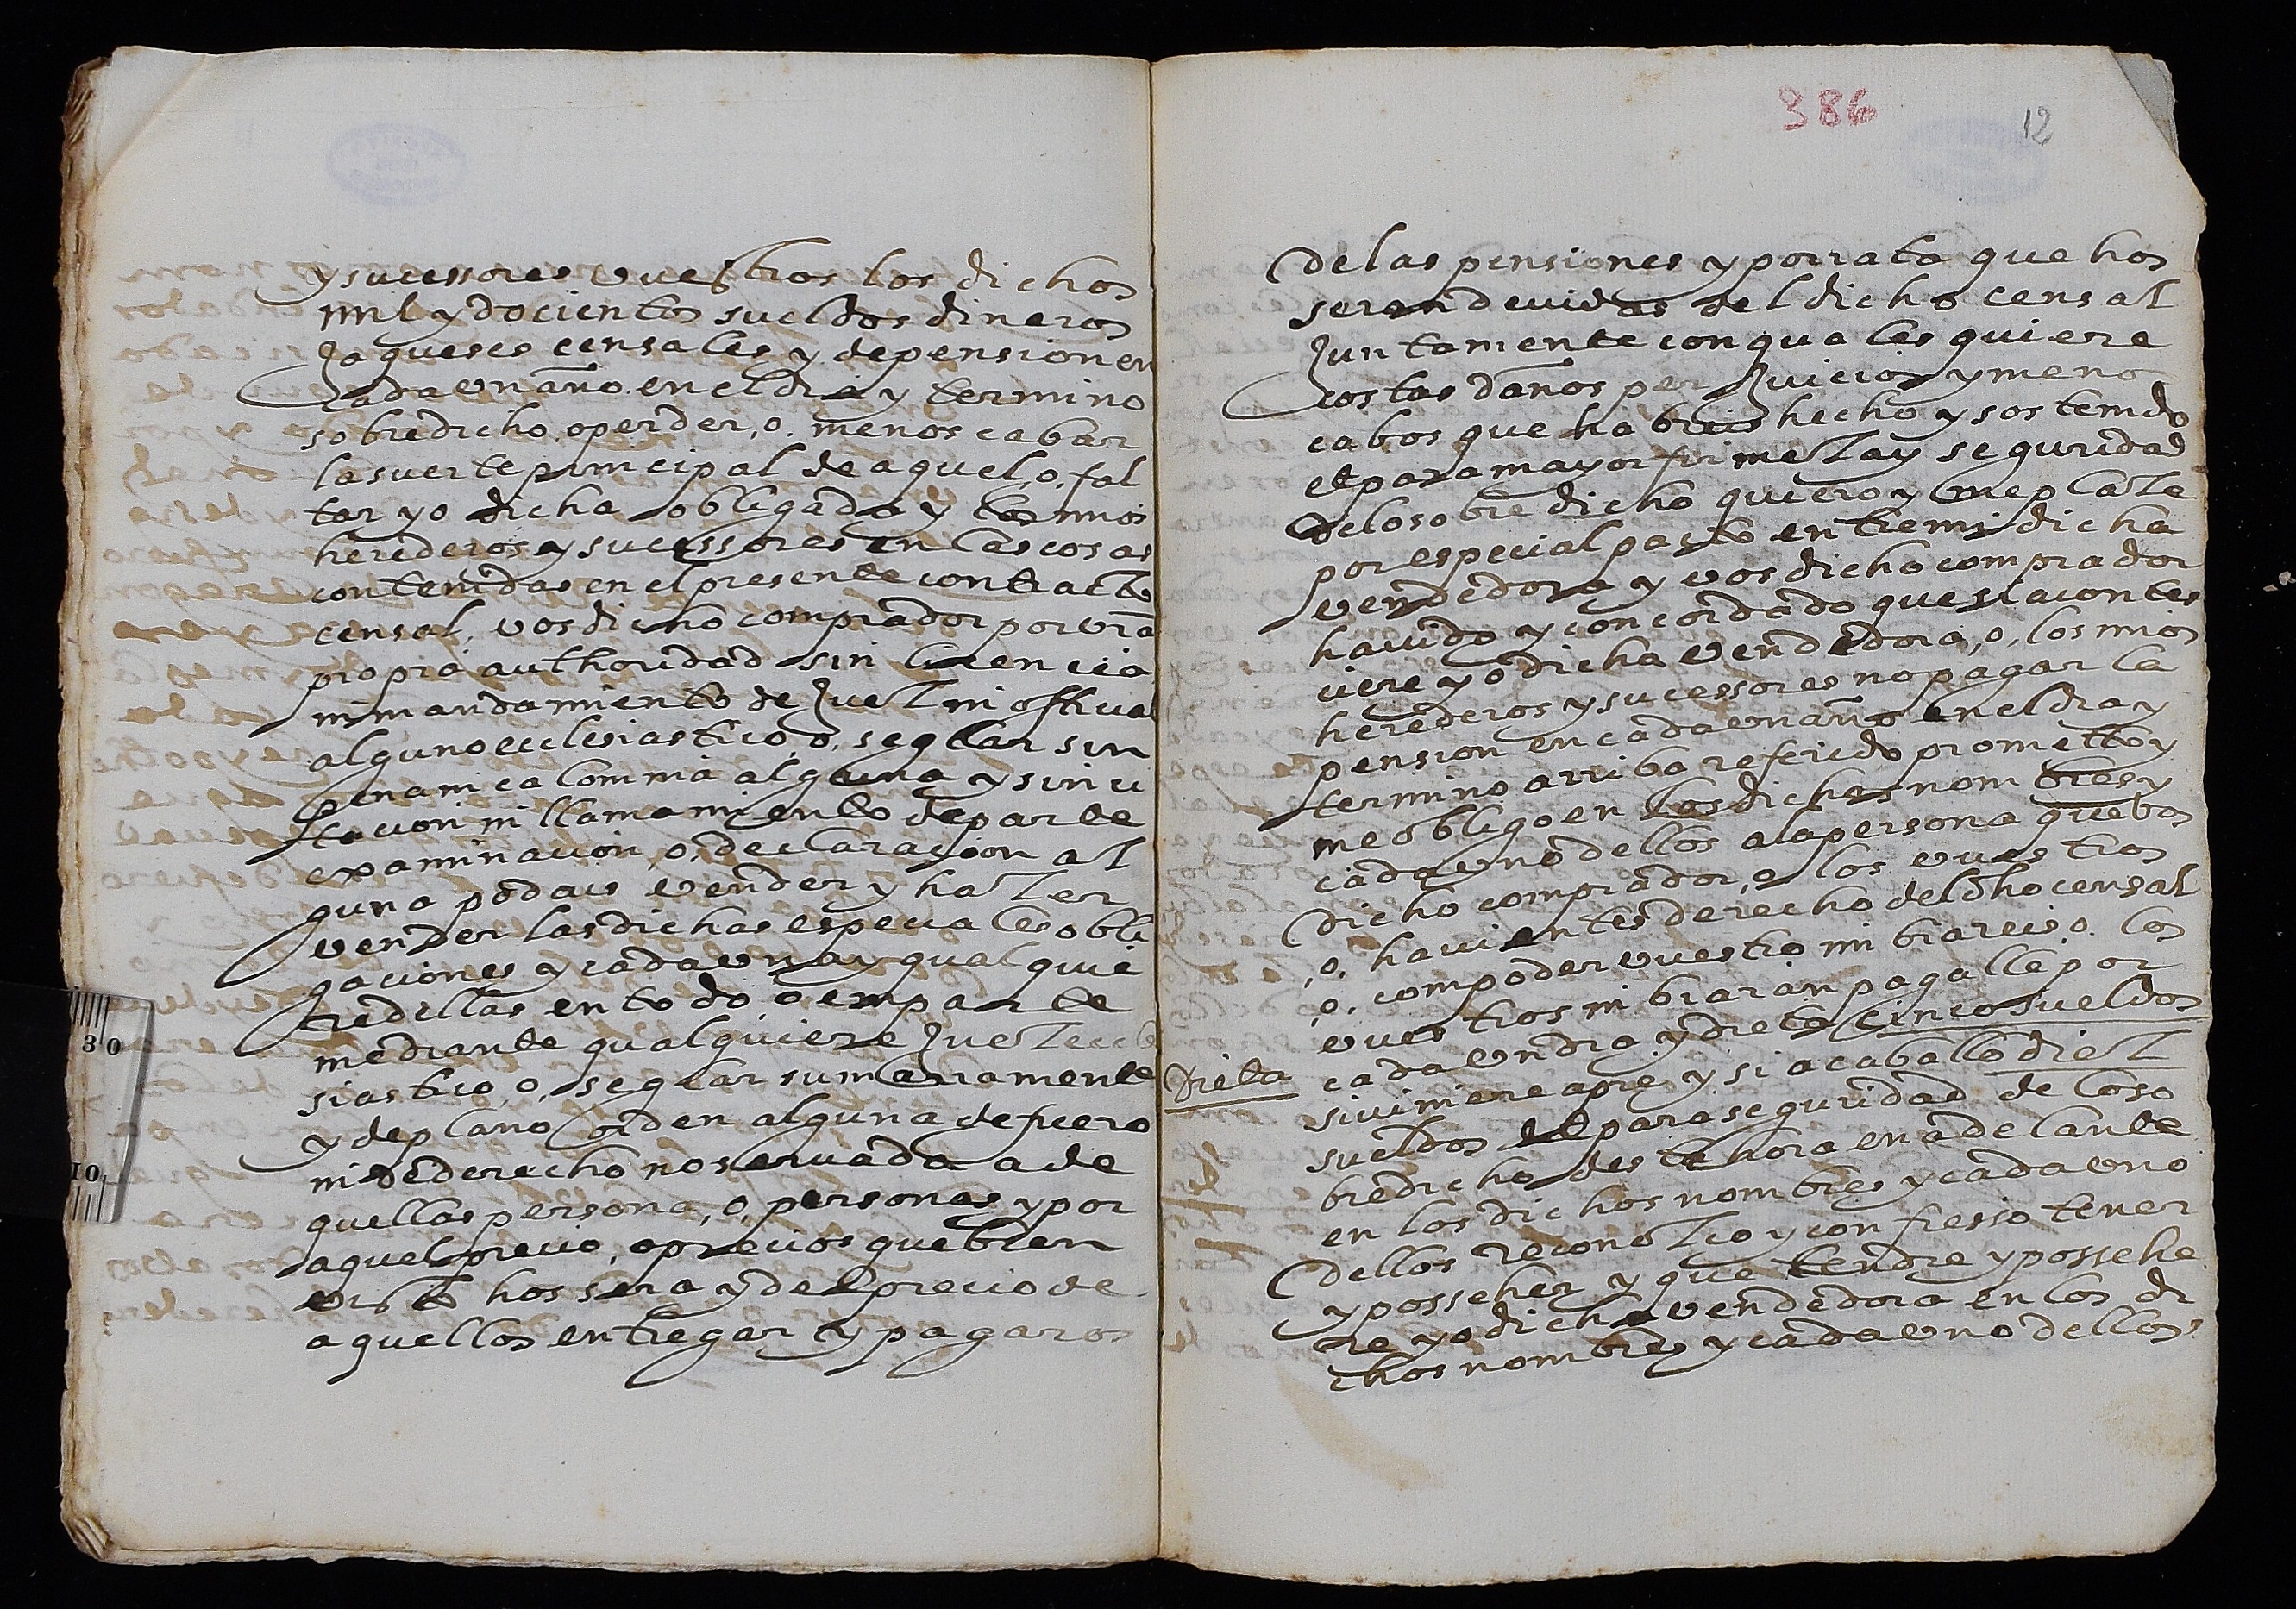 y sucessores vuestros los dichos
mil y docientos sueldos dineros
Jaqueses censales y de pension en
cada un año en el dia y termino
sobredicho, o perder, o, menos cabar
la suerte principal de aquel, o, fal
tar yo dicha obligada y los mios
herederos y sucessores en las cosas
contenidas en el presente contracto
censal, vos dicho comprador por vra
propia authoridad sin licencia
ni mandamiento de Juez ni official
alguno ecclesiastico, o, seglar sin
pena ni calonnia alguna y sin ci
tacion ni llamamiento de parte
examinacion, o, declaracion al
guna podais vender y hazer
vender las dichas especiales obli
gaciones y cada una y qual quie
re dellas en todo o en parte
mediante qualquiere Juez eccle
siastico, o, seglar sumariamente
y de plano orden alguna de fuero
ni de derecho no servada a de
quellas persona, o, personas y por
aquel precio, o precios que bien
visto hos sera y del precio de
aquellos entregar y pagaros
386
12
de las pensiones y porrata que hos
seran devidas del dicho censal
Juntamente con quales quiere
costas daños per Juicios y meno
cabos que habreis hecho y sostenido
et para mayor firmeza y seguridad
de lo sobre dicho quiero y me plaze
por especial pacto entre mi dicha
vendedora y vos dicho comprador
havido y concordado que si acontes
ciere yo dicha vendedora, o, los mios
herederos y sucessores no pagar la
pension en cada un año en el dia y
termino arriba referido prometto y
me obligo en los dichos nombres y
cada uno dellos a la persona que vos
dicho comprador, o los vuestros
,o, havientes derecho del dho censal
,o, com poder vuestro imbiareis, o, los
vuestros imbiaran pagalle por
cada un dia y dieta cinco sueldos
Dieta
si viniere a pie y si a caballo diez
sueldos et para seguridad de lo so
bredicho desta hora en adelante
en los dichos nombres y cada uno
dellos reconozco y confiesso tener
y posseher y que tendre y possehe
re yo dicha vendedora en los di
chos nombres y cada uno dellos
30
10